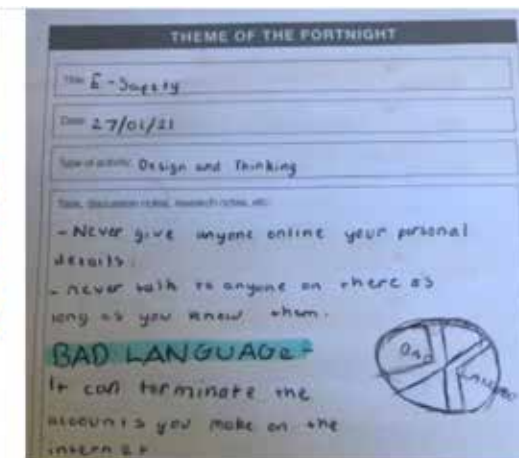 THEME OF THE FORTNIGHT
Title: E-Safety
Date: 27/01/21
Type of activity: Design and Thinking
Task, discussion notes, research notes, etc:
- Never give anyone online your personal
details.
- never talk to anyone on there as
long as you know them.
BAD LANGUAGE-
It can terminate the
accounts you make on the
internet